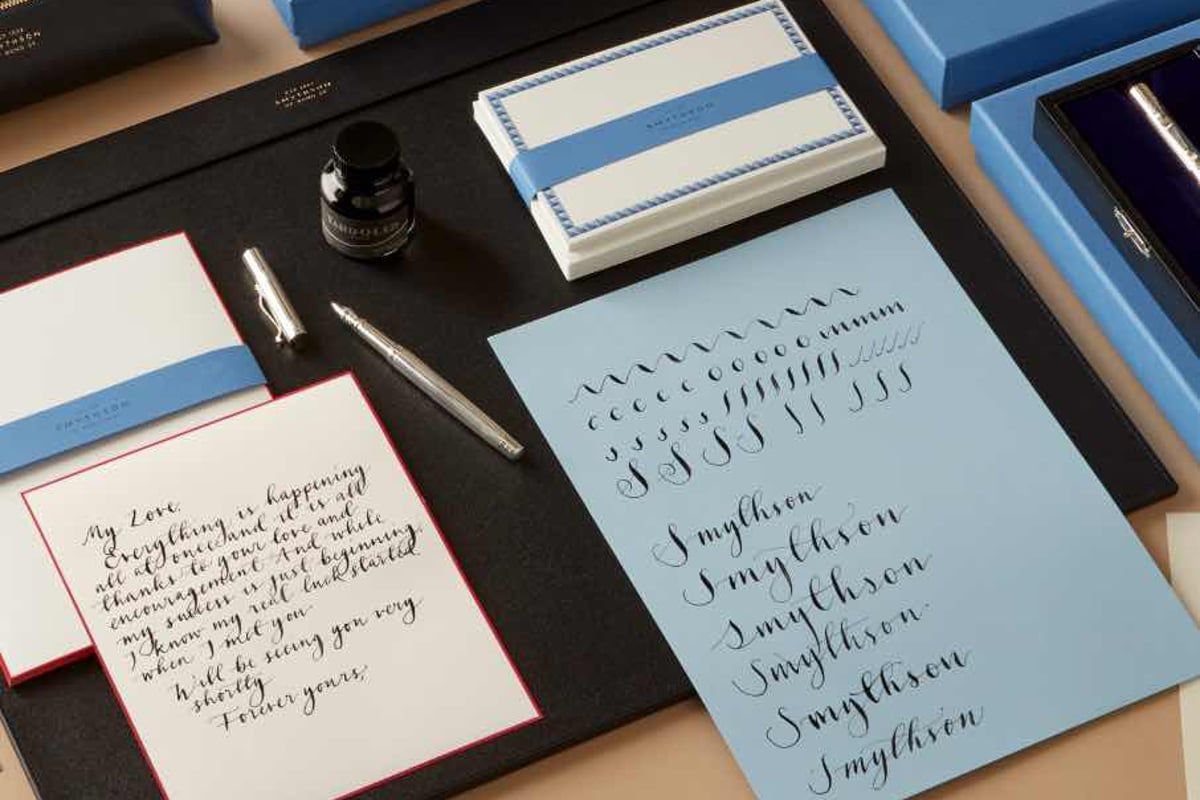 SMYTHSON
OF BOND ST.
SMYTHSON
SMYTHSON
My Love,
Everything is happening
all at once and it is all
thanks to your love and
encouragement. And while
my success is just beginning
I know my real luck started
when I met you
Will be seeing you very
shortly
Forever yours,
c c c c o o o o o
S S S S
Smythson
Smythson
Smythson
Smythson
Smythson
Smythson